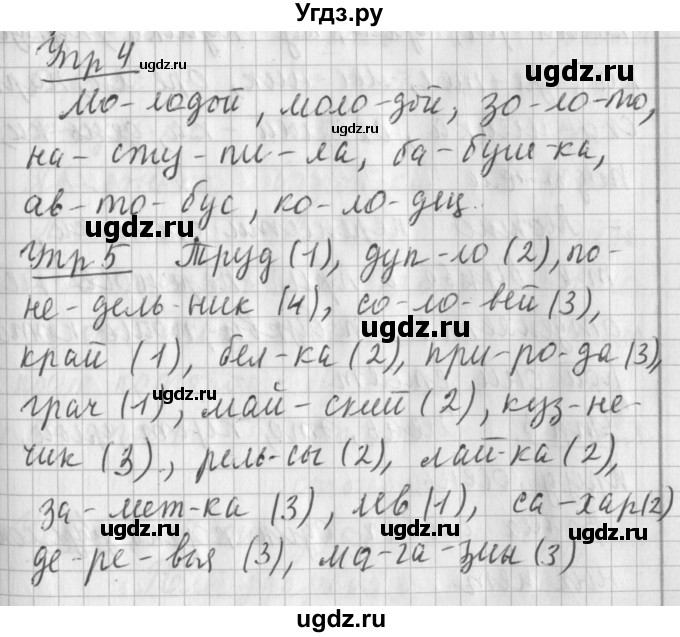 Угдз.ру
Упр 4
ugdz.ru
ugdz.ru
Мо-лодой, моло-дой, зо-ло-то,
ugdz.ru
на-сту-пи-ла, ба-буш-ка,
ugdz.ru
ав-то-бус, ко-ло-дец.
Упр 5 Труд (1), дуп-ло (2), по-
ugdz.ru
не-дель-ник (4), со-ло-вей (3),
ugdz.ru
край (1), бел-ка (2), при-ро-да (3),
ugdz.ru
грач (1), май-ский (2), куз-не-
чик (3), рель-сы (2), лай-ка (2),
ugdz.ru
за-мет-ка (3), лев (1), са-хар (2)
ugdz.ru
ugdz.ru
де-ре-вья (3), ма-га-зины (3)
ugdz.ru